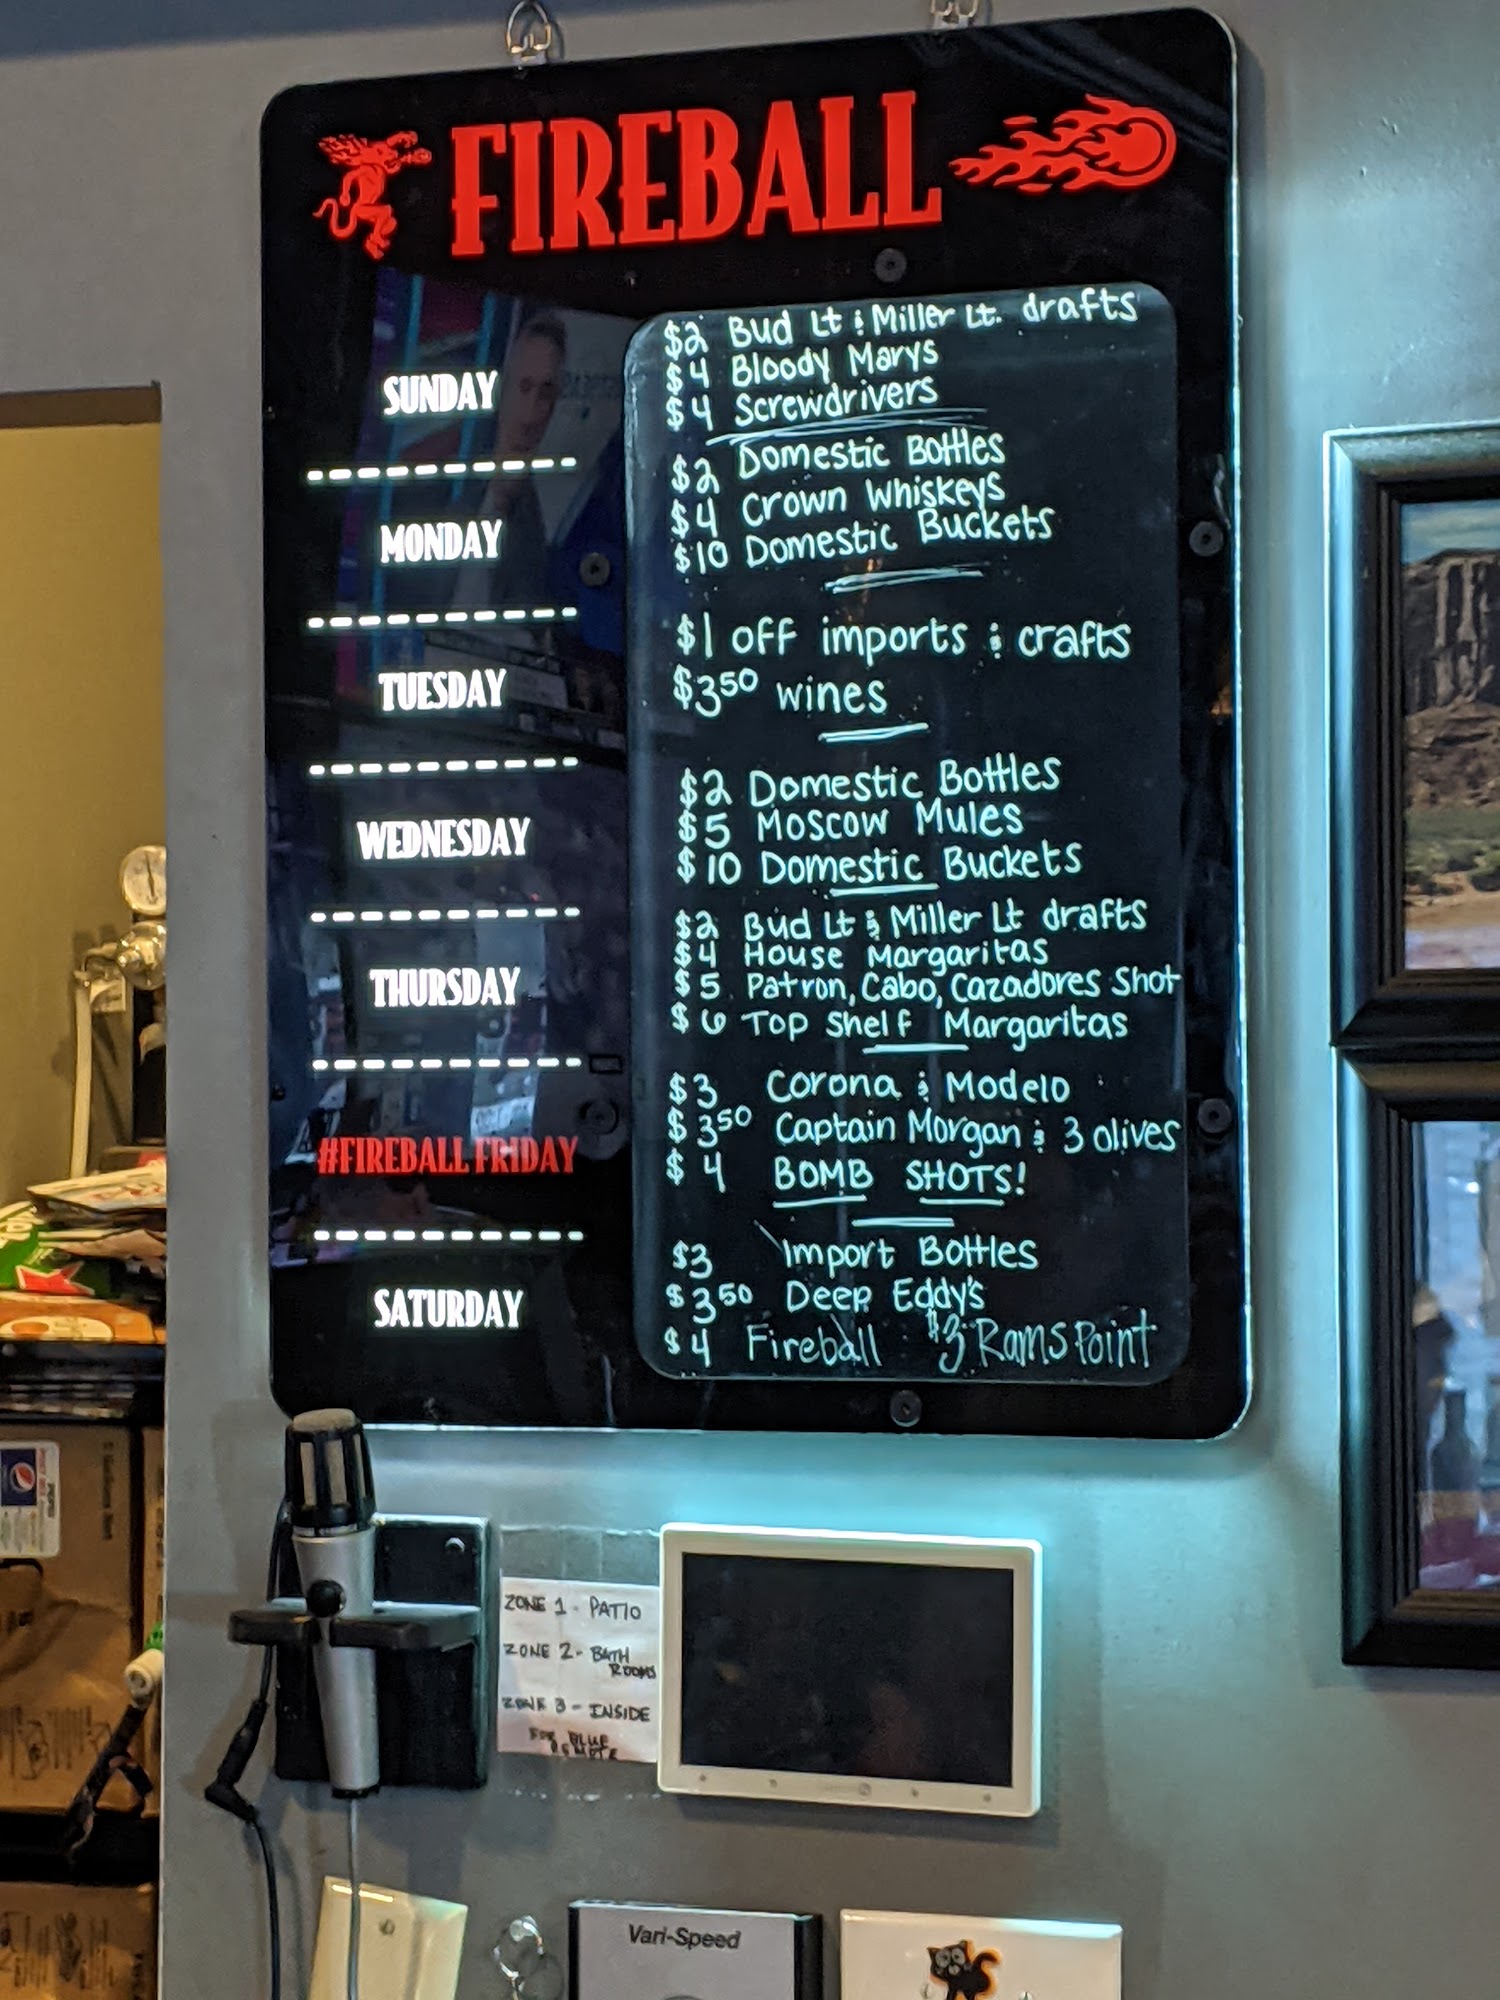 FIREBALL
SUNDAY
$2 Bud Lt & Miller Lt. drafts
$4 Bloody Marys
$4 Screwdrivers
MONDAY
$2 Domestic Bottles
$4 Crown Whiskeys
$10 Domestic Buckets
TUESDAY
$1 off imports & crafts
$3.50 wines
WEDNESDAY
$2 Domestic Bottles
$5 Moscow Mules
$10 Domestic Buckets
THURSDAY
$2 Bud Lt & Miller Lt drafts
$4 House Margaritas
$5 Patron, Cabo, Cazadores Shot
$6 Top Shelf Margaritas
#FIREBALL FRIDAY
$3 Corona & Modelo
$3 50 Captain Morgan & 3 olives
$4 BOMB SHOTS!
SATURDAY
$3 Import Bottles
$3 50 Deep Eddy's
$4 Fireball $3 Rams Point
ZONE 1 - PATIO
ZONE 2 - BATH
ROOMS
ZONE 3 - INSIDE
FOR BLUE
REMOTE
Vari-Speed